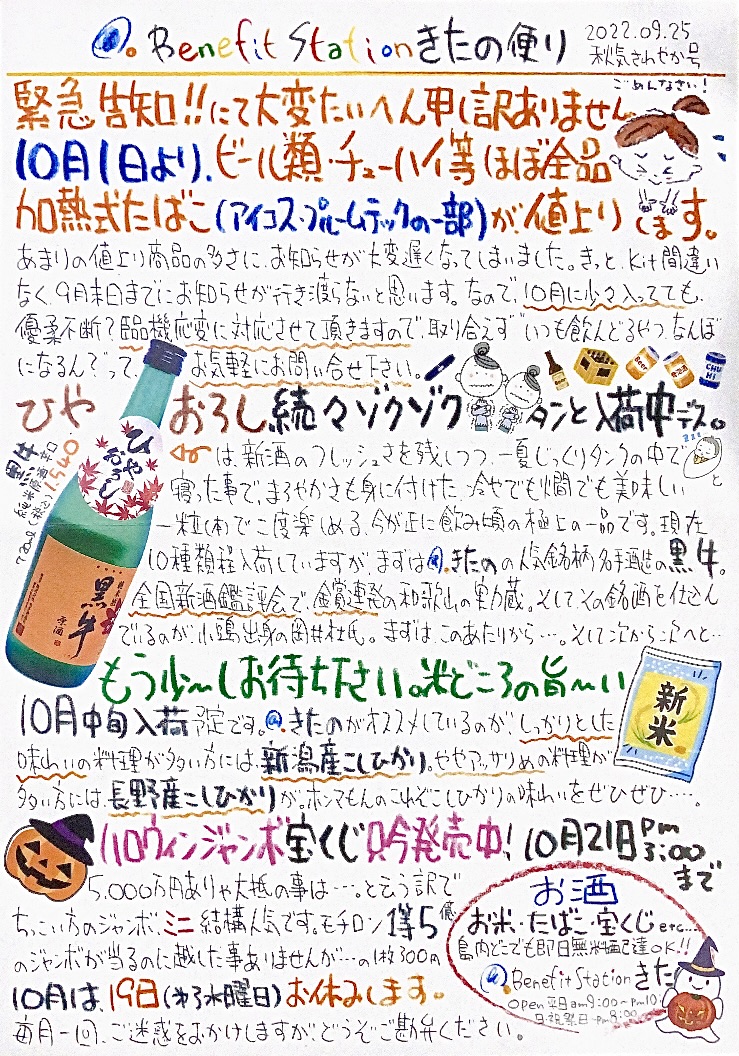 @. Benefit Stationきたの便り
2022.09.25
秋気さわやか号
ごめんなさい!
緊急告知!!にて大変たいへん申し訳ありません
10月1日より、ビール類・チューハイ等ほぼ全品
加熱式たばこ(アイコス・プルームテックの一部)が、値上りします。
あまりの値上り商品の多さに、お知らせが大変遅くなってしまいました。きっと、Kit間違い
なく、9月末日までにお知らせが行き渡らないと思います。なので、10月に少々入ってても、
優柔不断?臨機応変に対応させて頂きますので、取り合えず“いつも飲んどるやつ、なんぼ
になるん?”って、お気軽にお問い合せ下さい。
Beer
CHU HI
ひやおろし続々ゾクゾクタンと入荷中デス。
ひやおろし
黒牛
純米原酒 辛口
720ml(税込)
黒牛
原酒
は、新酒のフレッシュさを残しつつ、一夏じっくりタンクの中で
zzz
と
寝った事で、まろやかさも身に付けた、冷やでも燗でも美味しい
一粒(本)で二度楽しめる、今が正に飲み頃の極上の一品です。現在
10種類程入荷していますが、まずは@.きたのの人気銘柄名手酒造の黒牛。
全国新酒鑑評会で、金賞連発の和歌山の実力蔵。そしてその銘酒を仕込ん
でいるのが、小豆島出身の岡井杜氏。まずは、このあたりから…。そして次から次へと…
もう少〜しお待ち下さい。米どころの旨〜い
新米
10月中旬入荷予定です。@.きたのがオススメしているのが、しっかりとした
味わいの料理が多い方には、新潟産こしひかり。ややアッサリめの料理が
多い方には、長野産こしひかりが。ホンマもんのこれぞこしひかりの味わいをぜひぜひ…。
ハロウィンジャンボ宝くじ只今発売中! 10月21日pm3:00まで
5,000万円ありゃ大抵の事は…。と云う訳で
ちっこい方のジャンボ、ミニ結構人気です。モチロン1等5億
のジャンボが当るのに越した事ありませんが…の1枚300円
10月は、19日(第3水曜日)お休みします。
毎月一回、ご迷惑をおかけしますが、どうぞご勘弁ください。
お酒
お米・たばこ・宝くじetc...
島内どこでも即日無料配達OK!!
@.BenefitStationきたの
Open 平日am9:00〜pm10:00
日・祝祭日〜pm9:00